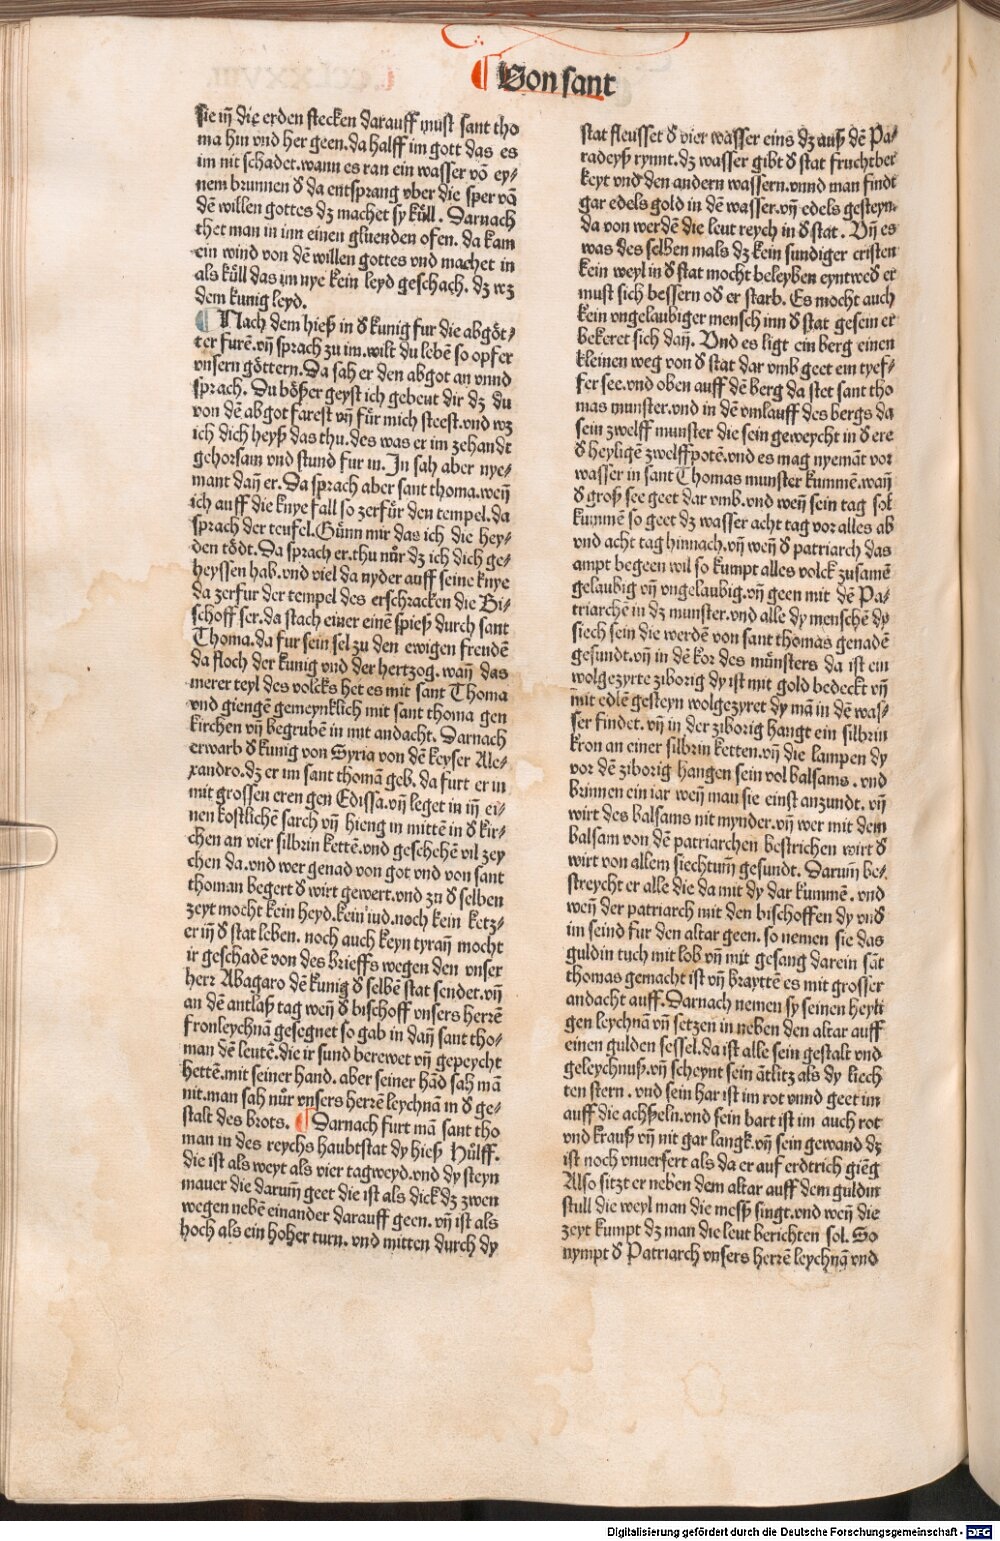 Von sant
sie iñ die erden stecken darauff must sant tho
ma hin vnd her geen. da halff im gott das es
im nit schadet. wann es ran ein wasser võ ey⸗
nem brunnen d̕ da entsprang vber die sper võ
dẽ willen gottes dz machet sy kül. Darnach
thet man in inn einen gluenden ofen. da kam
ein wind von dẽ willen gottes vnd machet in
als küll das im nye kein leyd geschach. dz wz
dem kunig leyd.
¶ Nach dem hieß in d̕ kunig fur die abgöt⸗
ter furẽ. vñ sprach zu im. wilt du lebẽ so opfer
vnsern göttern. Da sah er den abgot an vnnd
sprach. Du bößer geyst ich gebeut dir dz du
von dẽ abgot farest vñ für mich steest. vnd wz
ich dich heyß das thu. des was er im zehandt
gehorsam vnd stund fur in. In sah aber nye⸗
mant dañ er. Da sprach aber sant thoma. weñ
ich auff die knye fall so zerfür den tempel. da
sprach der teufel. Günn mir das ich die hey⸗
den tödt. Da sprach er. thu nůr dz ich dich ge⸗
heyssen hab. vnd viel da nyder auff seine knye
da zerfur der tempel des erschracken die Bi⸗
schoff ser. da stach einer einẽ spieß durch sant
Thoma. da fur sein sel zu den ewigen freudẽ
da floch der kunig vnd der hertzog. wañ das
merer teyl des volcks het es mit sant Thoma
vnd giengẽ gemeynklich mit sant thoma gen
kirchen vñ begrubẽ in mit andacht. Darnach
erwarb d̕ kunig von Syria von dẽ keyser Ale⸗
xandro. dz er im sant thomã geb. da furt er in
mit grossen eren gen Edissa. vñ leget in iñ ei⸗
nen kostlichẽ sarch vñ hieng in mittẽ in d̕ kir⸗
chen an vier silbrin kettẽ. vnd geschehẽ vil zey
chen da. vnd wer genad von got vnd von sant
thoman begert d̕ wirt gewert. vnd zu d̕ selben
zeyt mocht kein heyd. kein iud. noch kein ketz⸗
er iñ d̕ stat leben. noch auch keyn tyrañ mocht
ir geschadẽ von des brieffs wegen den vnser
herr Abagaro dẽ kunig d̕ selbẽ stat sendet. vñ
an dẽ antlaß tag weñ d̕ bischoff vnsers herrẽ
fronleychnã gesegnet so gab in dañ sant tho⸗
man dẽ leutẽ. die ir sund berewet vñ gepeycht
hettẽ. mit seiner hand. aber seiner hãd sah mã
nit. man sah nůr vnsers herrẽ leychnã in d̕ ge⸗
stalt des brots. ¶ Darnach furt mã sant tho
man in des reychs haubtstat dy hieß Hülff.
die ist als weyt als vier tagweyd. vnd dy steyn
mauer die darum̃ geet die ist als dick dz zwen
wegen nebẽ einander darauff geen. vñ ist als
hoch als ein hoher turn. vnd mitten durch dy
stat fleusset d̕ vier wasser eins dz auß dẽ Pa⸗
radeyß rynnt. dz wasser gibt d̕ stat fruchtber
keyt vnd̕ den andern wassern. vnnd man findt
gar edels gold in dẽ wasser. vñ edels gesteyn.
da von werdẽ die leut reych in d̕ stat. Vñ es
was des selben mals dz kein sundiger cristen
kein weyl in d̕ stat mocht beleyben eyntwed̕ er
must sich bessern od̕ er starb. Es mocht auch
kein vngelaubiger mensch inn d̕ stat gesein er
bekeret sich dañ. Vnd es ligt ein berg einen
kleinen weg von d̕ stat dar vmb geet ein tyef⸗
fer see. vnd oben auff dẽ berg da stet sant tho
mas munster. vnd in dẽ vmlauff des bergs da
sein zwelff munster die sein geweycht in d̕ ere
d̕ heyligẽ zwelffpotẽ. vnd es mag nyemãt vor
wasser in sant Thomas munster kummẽ. wañ
d̕ groß see geet dar vmb. vnd weñ sein tag sol
kummẽ so geet dz wasser acht tag vor alles ab
vnd acht tag hinnach. vñ weñ d̕ patriarch das
ampt begeen wil so kumpt alles volck zusamẽ
gelaubig vñ vngelaubig. vñ geen mit dẽ Pa⸗
triarchẽ in dz munster. vnd alle dy menschẽ dy
siech sein die werdẽ von sant thomas genadẽ
gesundt. vñ in dẽ kor des münsters da ist ein
wolgezyrte ziborig dy ist mit gold bedeckt vñ
mit edlẽ gesteyn wolgezyret dy mã in dẽ was⸗
ser findet. vñ in der ziborig hangt ein silbrin
kron an einer silbrin ketten. vñ die lampen dy
vor dẽ ziborig hangen sein vol balsams. vnd
brinnen ein iar weñ man sie einst anzundt. vñ
wirt des balsams nit mynder. vñ wer mit dem
balsam von dẽ patriarchen bestrichen wirt d̕
wirt von allem siechtum̃ gesundt. Darum̃ be⸗
streycht er alle die da mit dy dar kummẽ. vnd
weñ der patriarch mit den bischoffen dy vnd̕
im seind fur den altar geen. so nemen sie das
guldin tuch mit lob vñ mit gesang darein sãt
thomas gemacht ist vñ brayttẽ es mit grosser
andacht auff. Darnach nemen sy seinen heyli
gen leychnã vñ setzen in neben den altar auff
einen gulden sessel. da ist alle sein gestalt vnd
geleychnuß. vñ scheynt sein ãtlitz als dy liech
ten stern. vnd sein har ist im rot vnnd geet im
auff die achßeln. vnd sein bart ist im auch rot
vnd krauß vñ nit gar langk. vñ sein gewand dz
ist noch vnuersert als da er auf erdtrich giẽg
Also sitzt er neben dem altar auff dem guldin
stull die weyl man die meß singt. vnd weñ die
zeyt kumpt dz man die leut berichten sol. So
nympt d̕ Patriarch vnsers herrẽ leychnã vnd
Digitalisierung gefördert durch die Deutsche Forschungsgemeinschaft - DFG